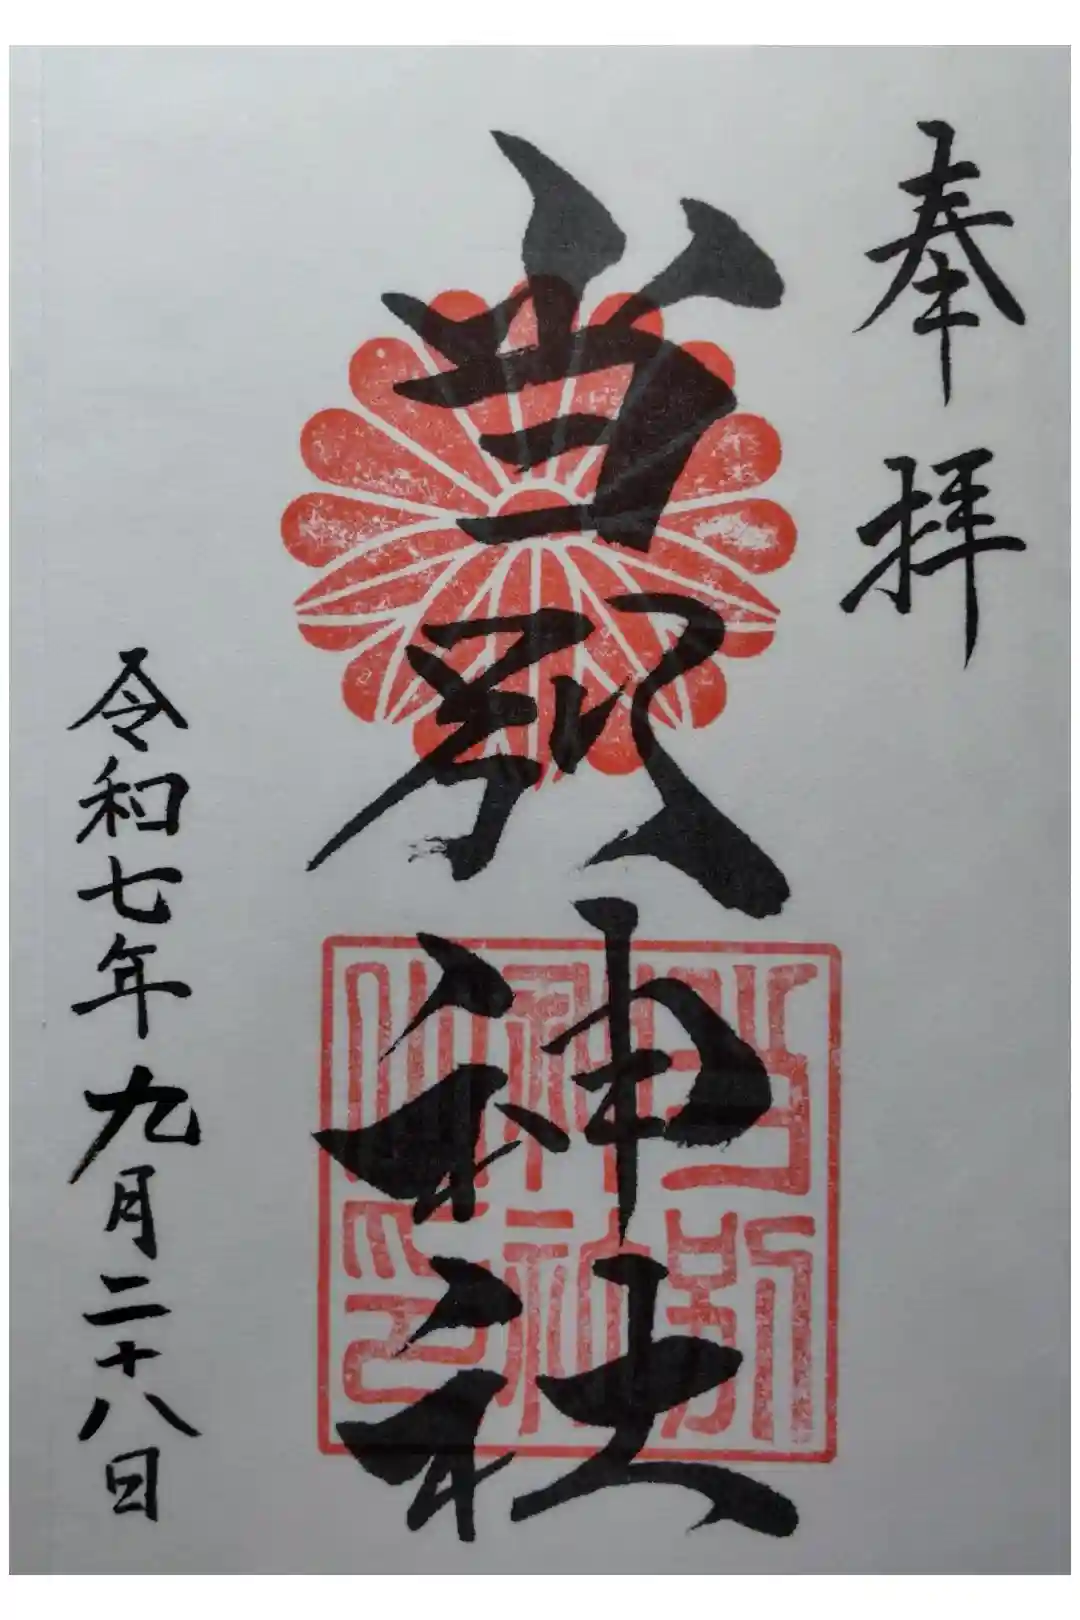 奉拝
当 神社
令和七年九月二十八日